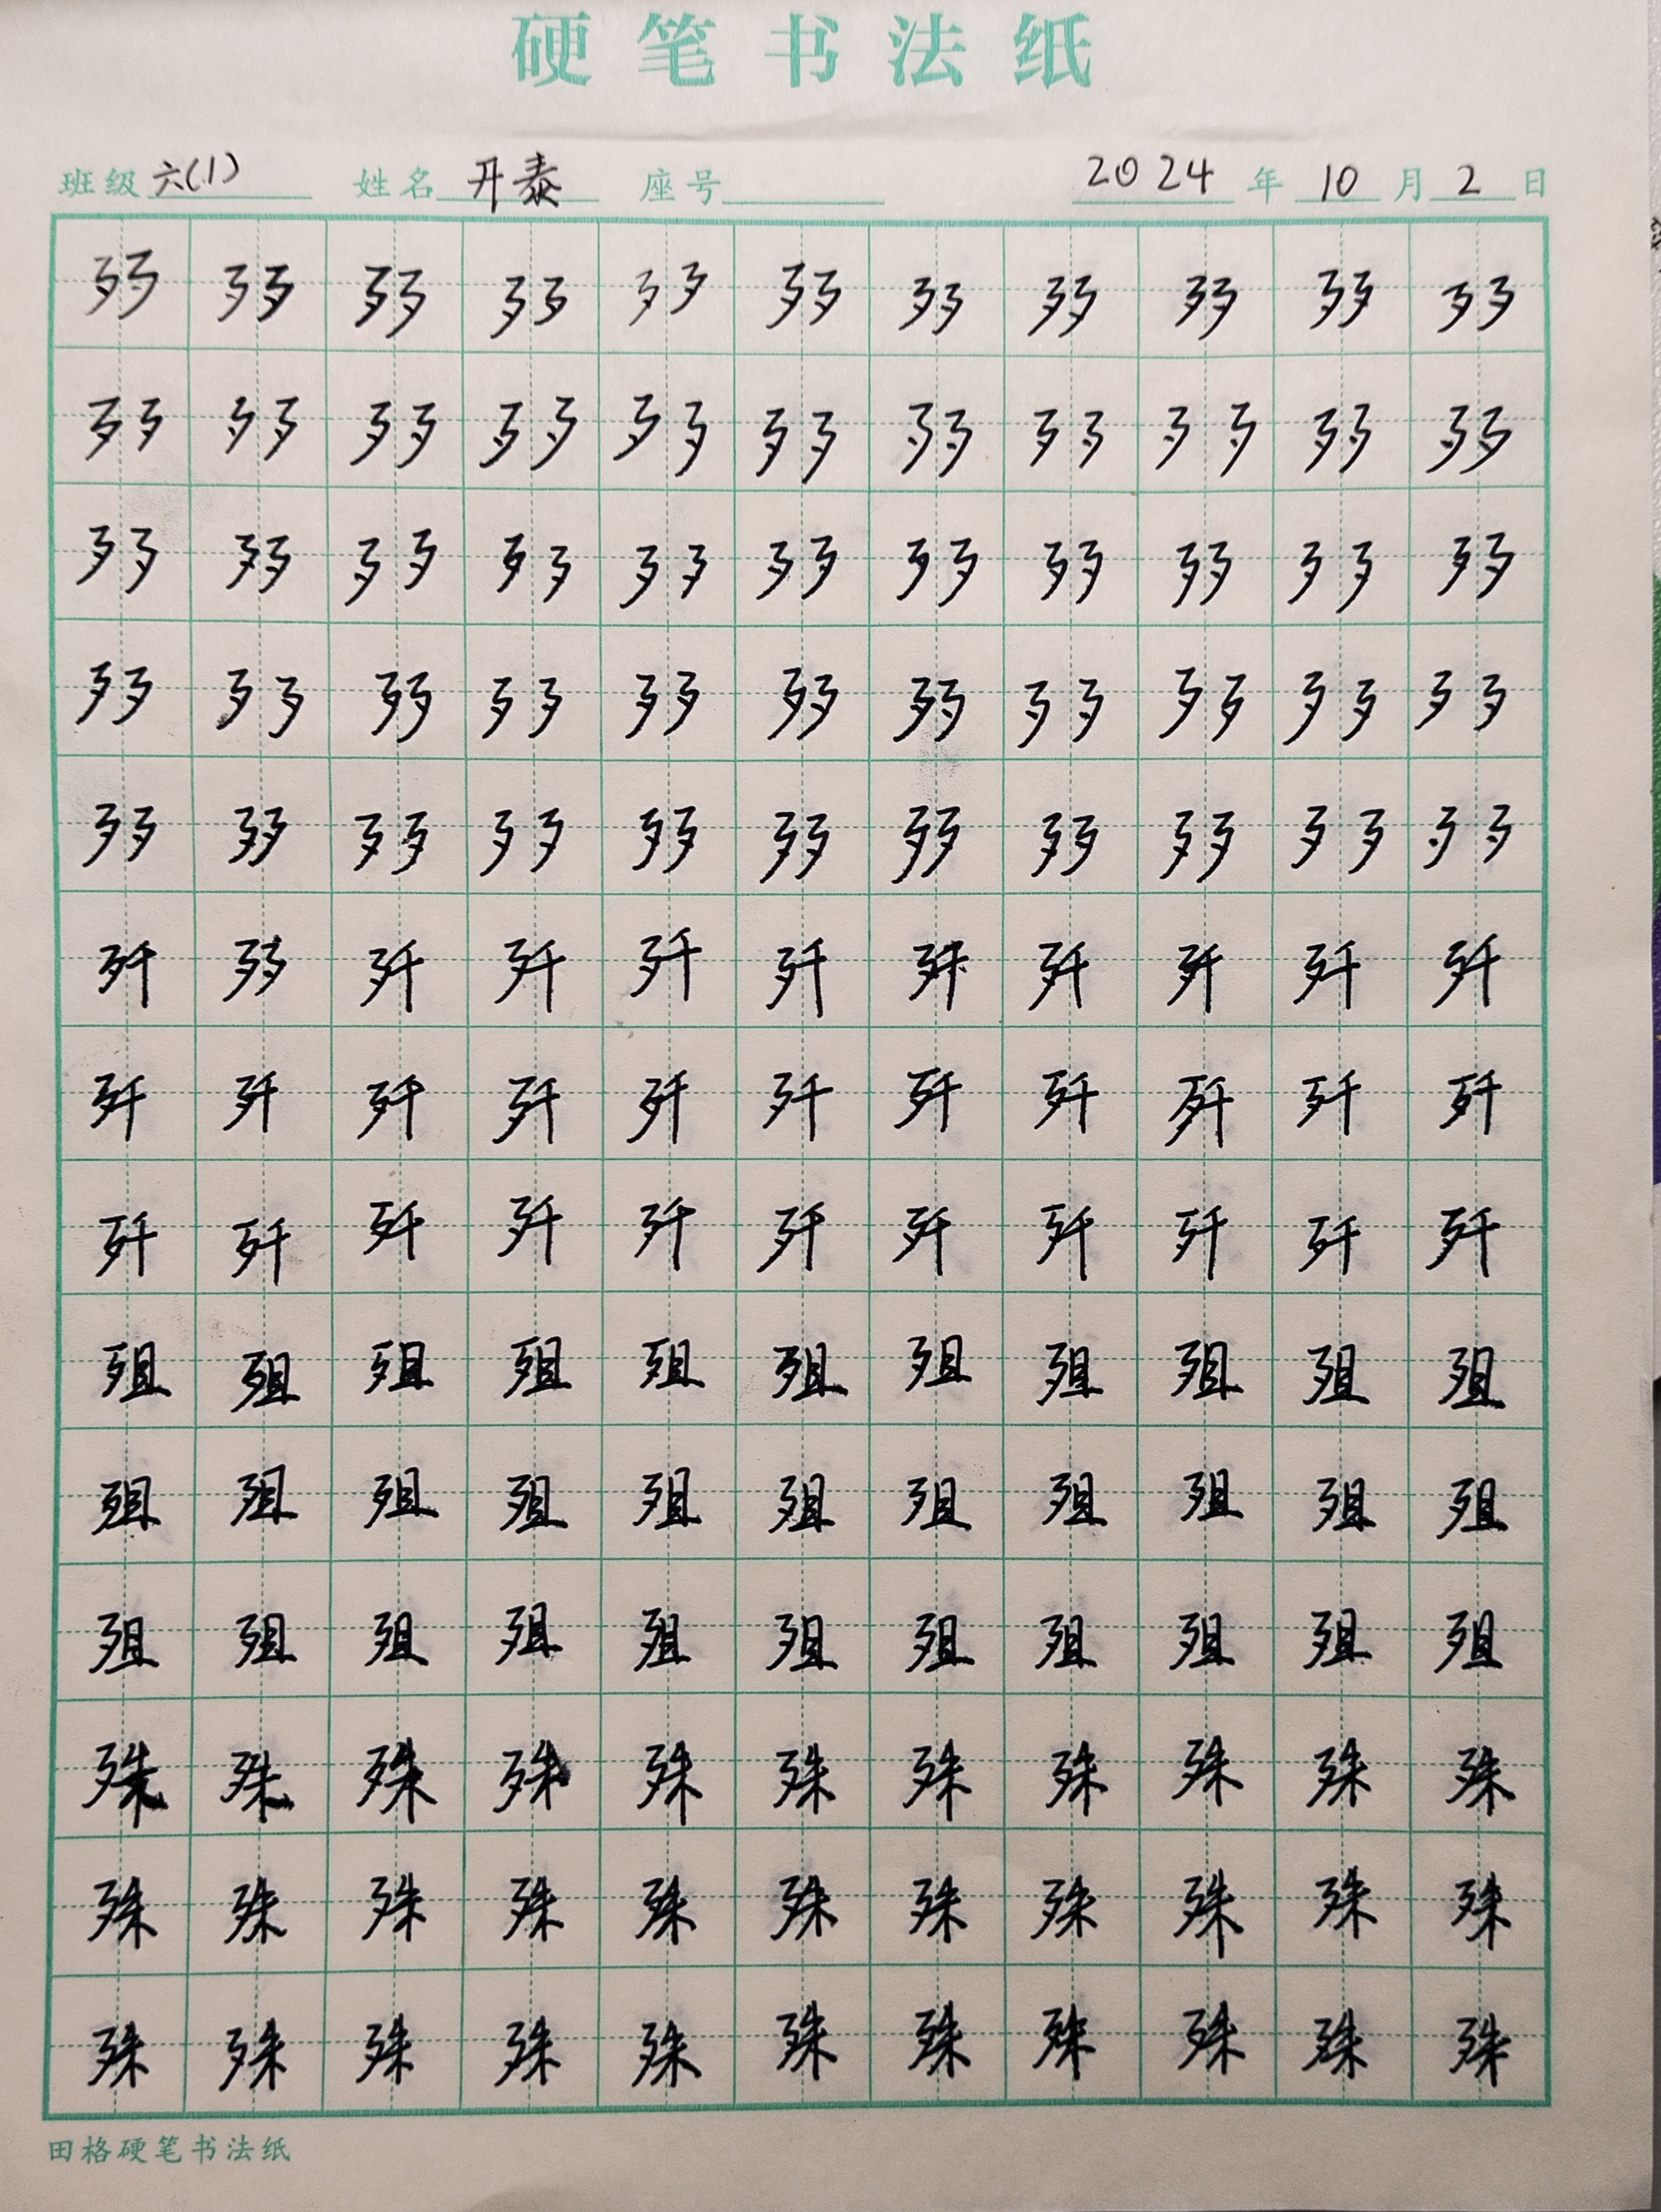 硬笔书法纸
班级 六(1) 姓名 丹泰 座号 2024 年 10 月 2 日
歹歹 歹歹 歹歹 歹歹 歹歹 歹歹 歹歹 歹歹 歹歹 歹歹 歹歹
歹歹 歹歹 歹歹 歹歹 歹歹 歹歹 歹歹 歹歹 歹歹 歹歹 歹歹
歹歹 歹歹 歹歹 歹歹 歹歹 歹歹 歹歹 歹歹 歹歹 歹歹 歹歹
歹歹 歹歹 歹歹 歹歹 歹歹 歹歹 歹歹 歹歹 歹歹 歹歹 歹歹
歹歹 歹歹 歹歹 歹歹 歹歹 歹歹 歹歹 歹歹 歹歹 歹歹 歹歹
歼 歹歹 歼 歼 歼 歼 歼 歼 歼 歼 歼
歼 歼 歼 歼 歼 歼 歼 歼 歼 歼 歼
歼 歼 歼 歼 歼 歼 歼 歼 歼 歼 歼
殂 殂 殂 殂 殂 殂 殂 殂 殂 殂 殂
殂 殂 殂 殂 殂 殂 殂 殂 殂 殂 殂
殂 殂 殂 殂 殂 殂 殂 殂 殂 殂 殂
殊 殊 殊 殊 殊 殊 殊 殊 殊 殊 殊
殊 殊 殊 殊 殊 殊 殊 殊 殊 殊 殊
殊 殊 殊 殊 殊 殊 殊 殊 殊 殊 殊
田格硬笔书法纸